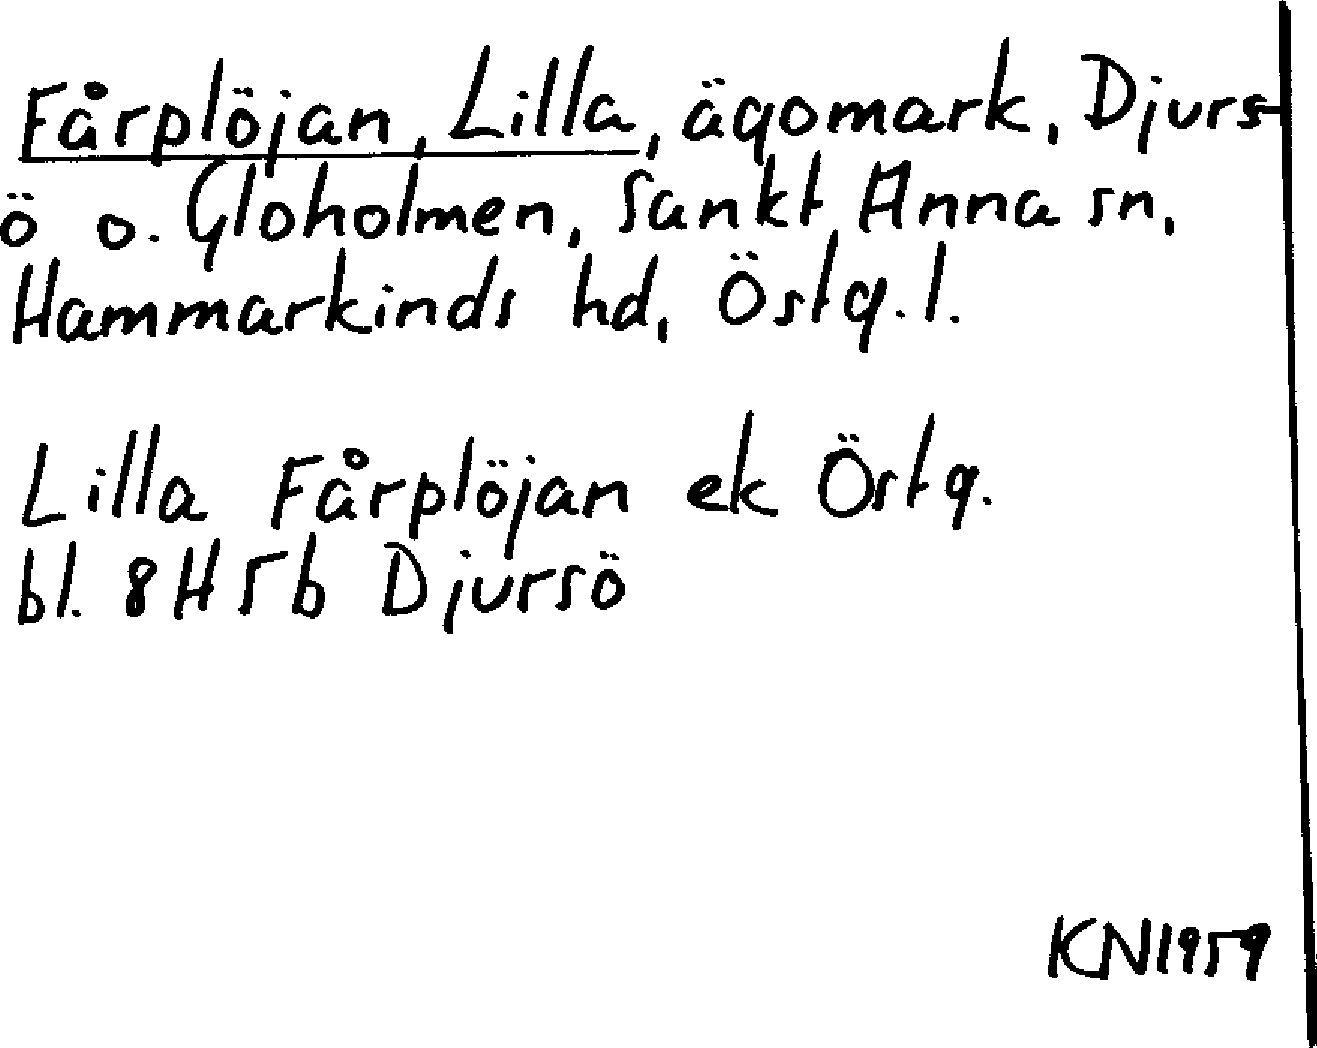 Fårplöjan, Lilla, ägomark, Djurs-
ö o. Gloholmen, Sankt Anna sn,
Hammarkinds hd, Östg. l.
Lilla Fårplöjan ek Östg.
bl. 8H5b Djursö
KN1959